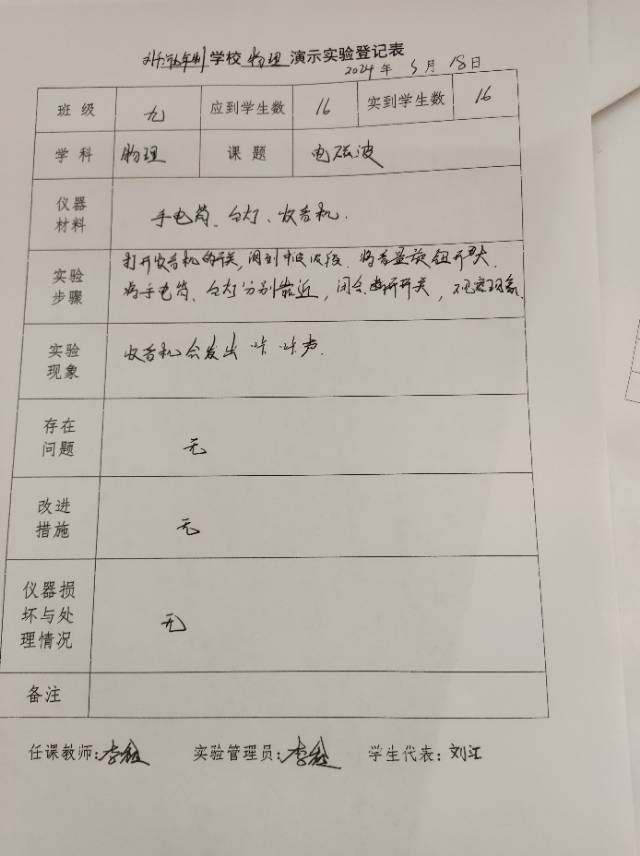 学校 物理 演示实验登记表
2024年5月18日
班级 九 应到学生数 16 实到学生数 16
学科 物理 课题 电磁波
仪器材料 手电筒、台灯、收音机.
实验步骤 打开收音机的开关,调到中波波段.将音量旋钮开大.
将手电筒、台灯分别靠近,闭合断开开关,观察现象.
实验现象 收音机会发出咔咔声.
存在问题 无
改进措施 无
仪器损坏与处理情况 无
备注
任课教师: 实验管理员: 学生代表:刘江